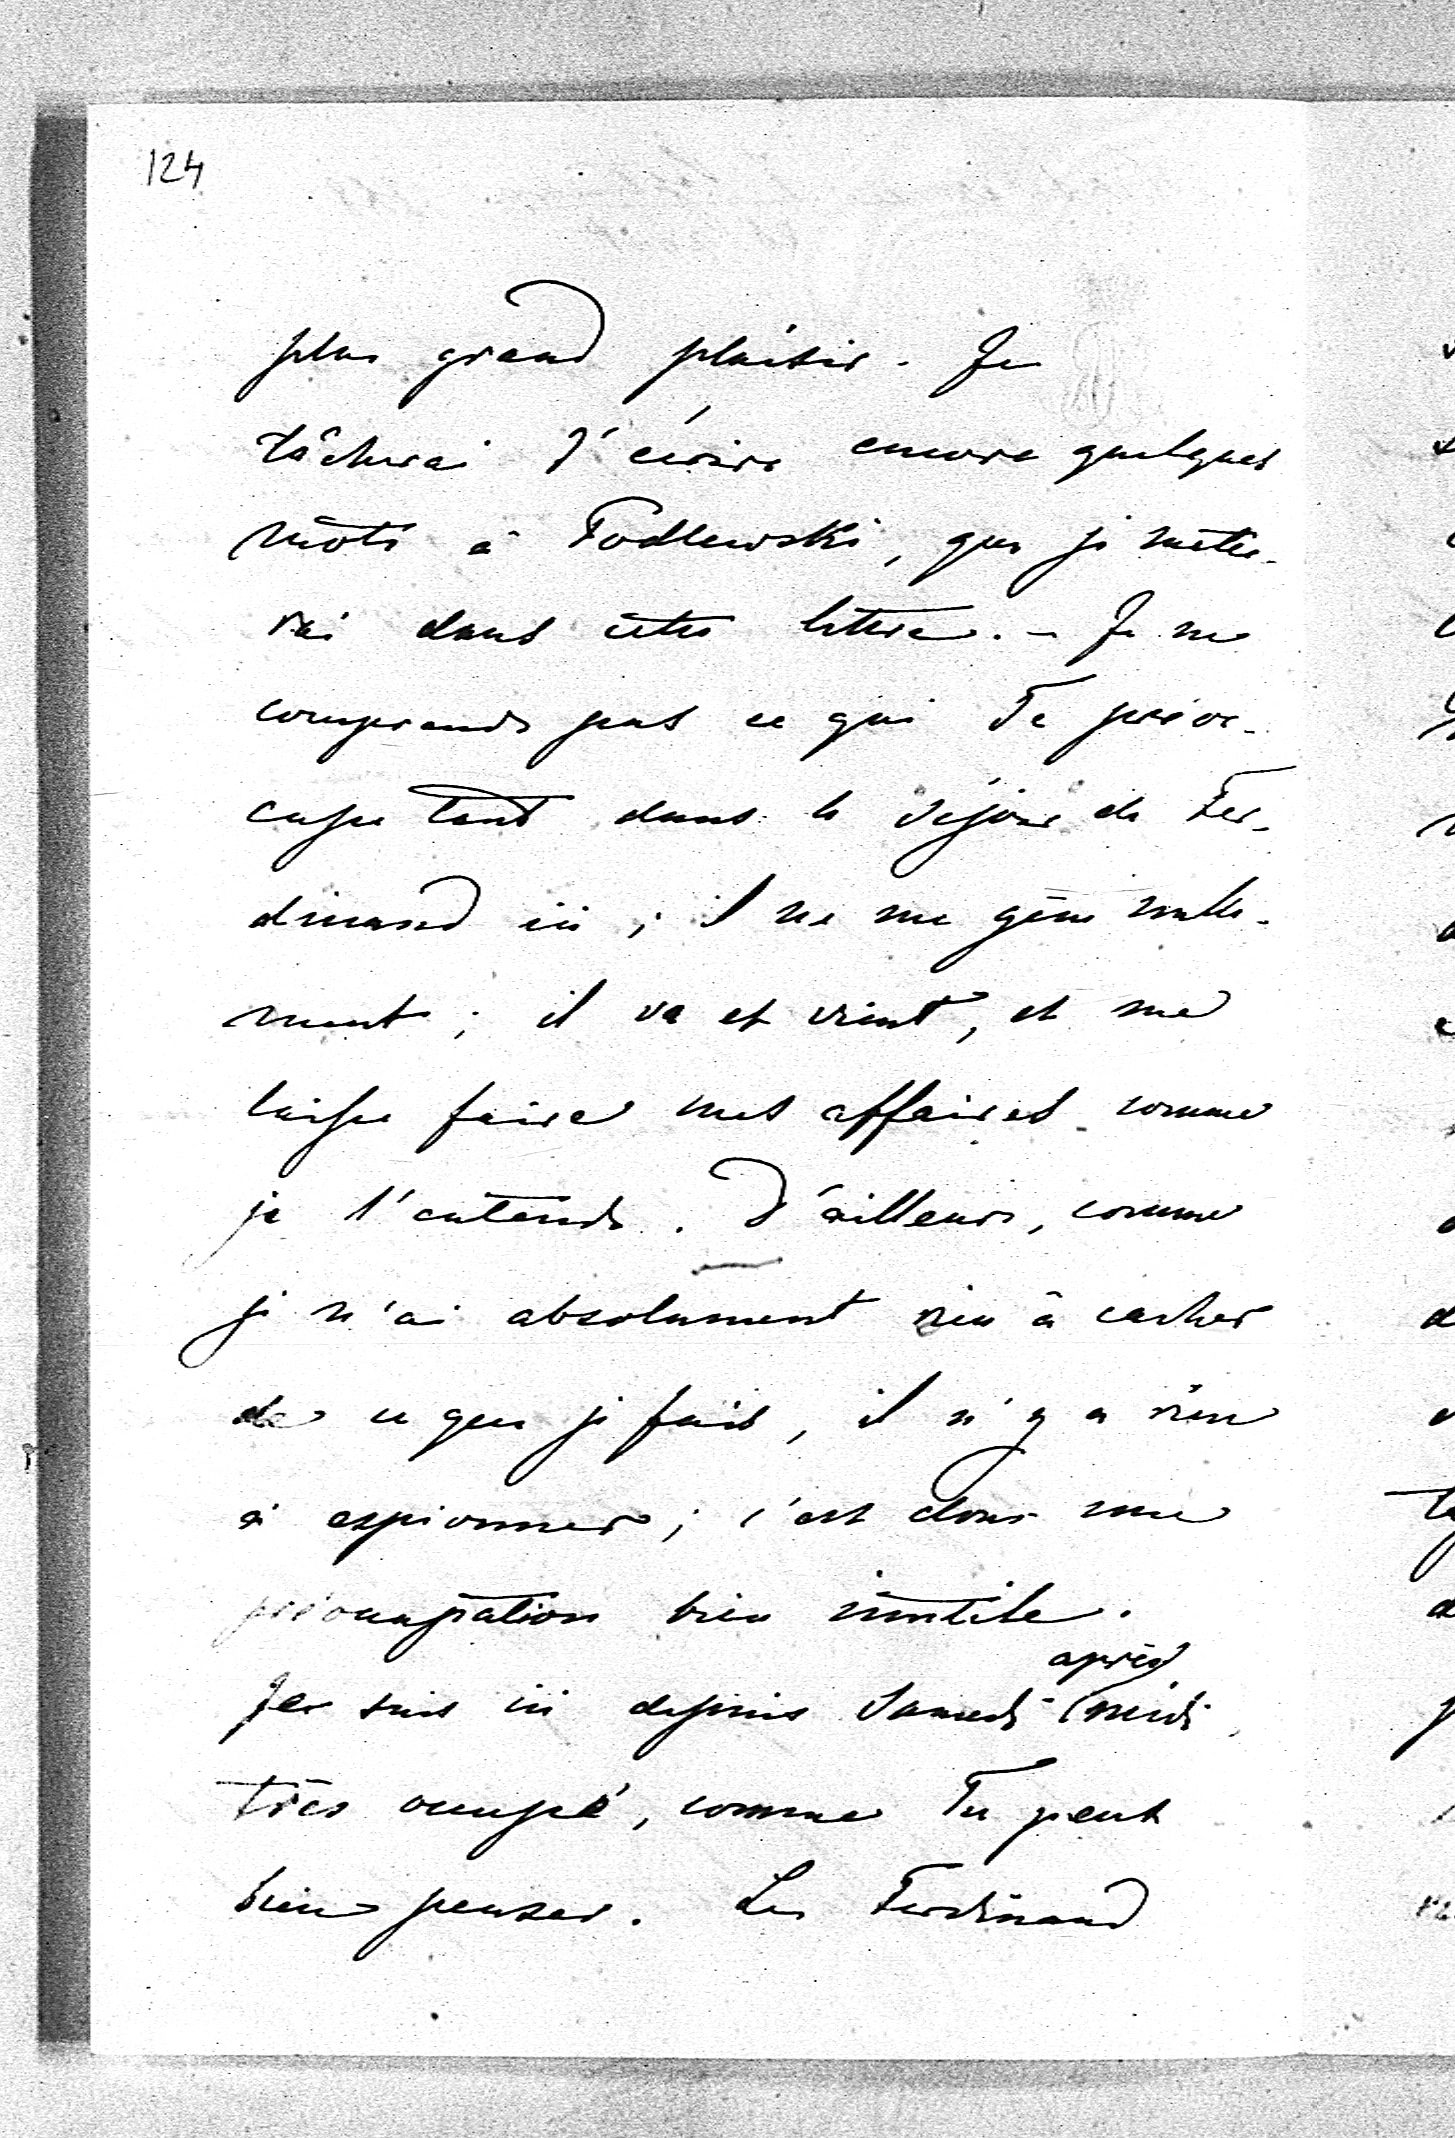 124
plus grand plaisir. Je
tâcherai d'écrire encore quelques
mots à Podlewski, que je mette-
rai dans cette lettre. – Je ne
comprends pas ce qui Te préoc-
cupe tant dans le séjour de Fer-
dinand ici ; il ne me gêne nulle-
ment ; il va et vient, et me
laisse faire mes affaires comme
je l'entends. D'ailleurs, comme
je n'ai absolument rien à cacher
de ce que je fais, il n'y a rien
à espionner ; c'est donc une
préoccupation bien inutile.
après
Je suis ici depuis Samedi midi,
très occupé, comme Tu peux
bien penser. Les Ferdinand